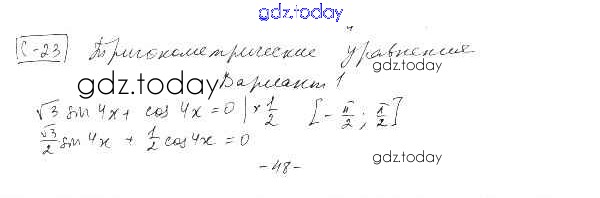 gdz.today
С-23 Тригонометрические уравнения
gdz.today
gdz.today Вариант 1
√3 sin 4x + cos 4x = 0 | × 1/2 [-π/2; π/2]
√3/2 sin 4x + 1/2 cos 4x = 0
gdz.today
- 48 -